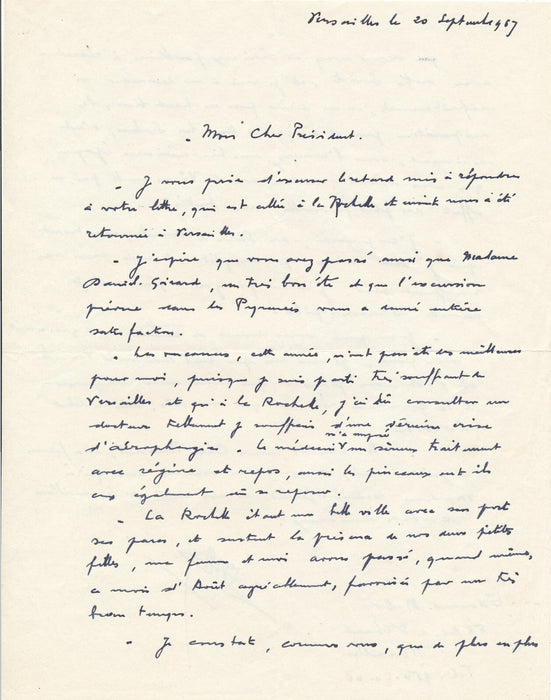 Versailles le 20 Septembre 1967
Mon Cher Président.
- Je vous prie d'excuser le retard mis à répondre
à votre lettre, qui est allée à la Rochelle et ensuite nous a été
retournée à Versailles.
- J'espère que vous avez passé ainsi que Madame
David-Girard, un très bon été et que l'excursion
prévue dans les Pyrénées vous a donné entière
satisfaction.
- Les vacances, cette année, n'ont pas été des meilleures
pour moi, puisque je suis parti très souffrant de
Versailles et qu'à la Rochelle, j'ai dû consulter un
docteur tellement je souffrais d'une sérieuse crise
d'aérophagie. Le médecin m'a imposé un sérieux traitement
avec régime et repos, aussi les pinceaux ont ils
eux également dû se reposer.
- La Rochelle étant une belle ville avec son port
ses parcs, et surtout la présence de nos deux petites
filles, ma femme et moi avons passé, quand même,
ce mois d'Août agréablement, favorisés par un très
beau temps.
- Je constate, comme vous, que de plus en plus